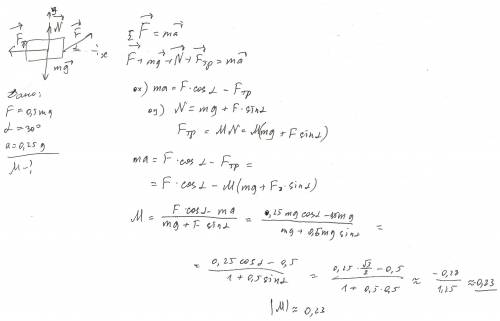 N F
Fтр
x
mg
Дано:
F = 0,5mg
α = 30°
a = 0,25g
M - ?
Σ F = ma
F + mg + N + Fтр = ma
ox) ma = F · cosα - Fтр
oy) N = mg + F · sinα
Fтр = MN = M(mg + F sinα)
ma = F · cosα - Fтр =
= F · cosα - M(mg + F · sinα)
M = (F cosα - ma) / (mg + F sinα) = (0,25 mg cosα - 0,5mg) / (mg + 0,5mg sinα) =
= (0,25 cosα - 0,5) / (1 + 0,5 sinα) = (0,25 · √3/2 - 0,5) / (1 + 0,5 · 0,5) ≈ (-0,28) / 1,25 ≈ 0,23
|M| ≈ 0,23